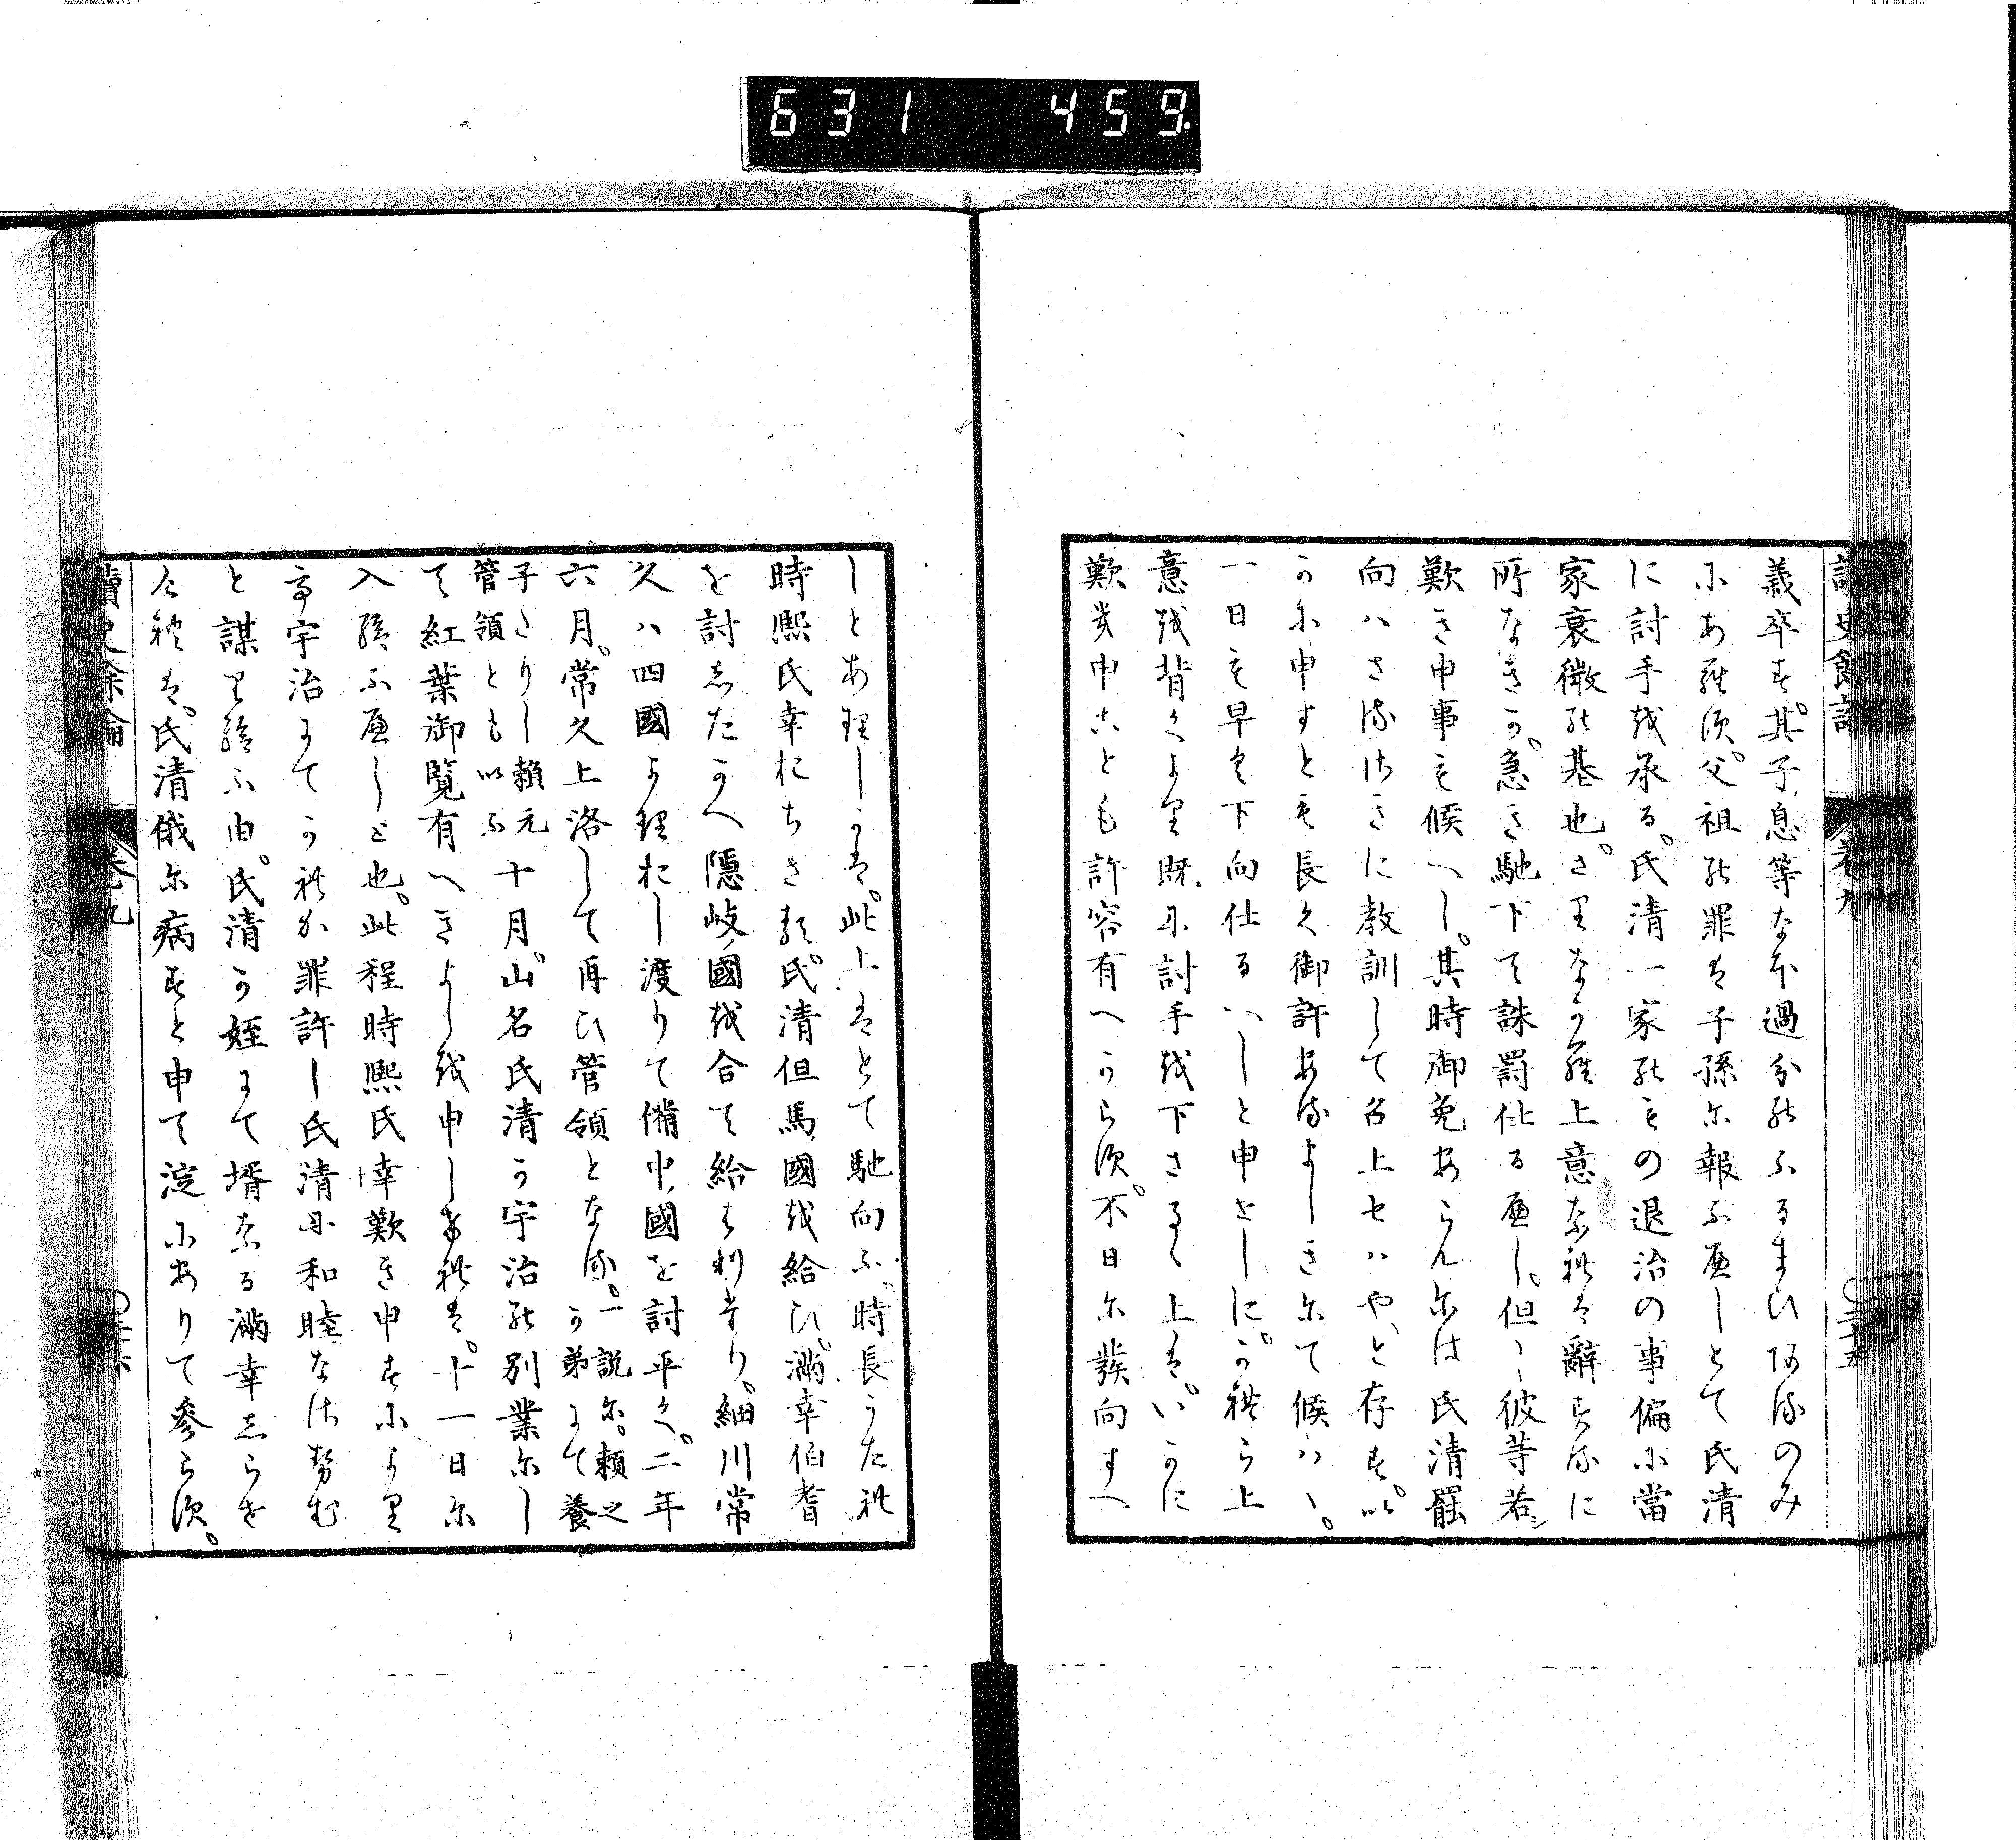 631 459
讀史餘論 卷九
義卒す。其子息等なほ過分のふるまひあるのみ
にあらす。父祖の罪は子孫に報ふへしとて氏清
に討手を承る。氏清一家のもの退治の事偏に當
家衰微の基也。さりなから上意なれは辭するに
所なきか。急き馳下て誅罰仕るへし。但し彼等若シ
歎き申事も候へし。其時御免あらんには氏清罷
向ハさるさきに教訓して召上セハやと存す。い
かに申すとも長く御許あるましきにて候ハヽ。
一日も早く下向仕るへしと申せしに。かねら上
意を背くより既に討手を下さるゝ上は。いかに
歎き申すとも許容有へからす。不日に發向すへ
しとありしかは。此上はとて馳向ふ。時長うたれ
時熙氏幸おちきぬ。氏清但馬國を給ひ。滿幸伯耆
を討したかへ隱岐國を合て給はりけり。細川常
久ハ四國よりおし渡りて備中國を討平く。二年
六月。常久上洛して再ひ管領となる。一説に。賴之か弟にて養
子さりし賴元管領ともいふ十月。山名氏清か宇治の別業にし
て紅葉御覽有へきよしを申しけれは。十一日に
入給ふへしと也。此程時熙氏幸歎き申すにより
て宇治にてかれか罪許し氏清に和睦なさせむ
と謀り給ふ由。氏清か姪にて壻なる滿幸しらせ
けれは。氏清俄に病すと申て淀にありて參らす。
讀史餘論 卷九